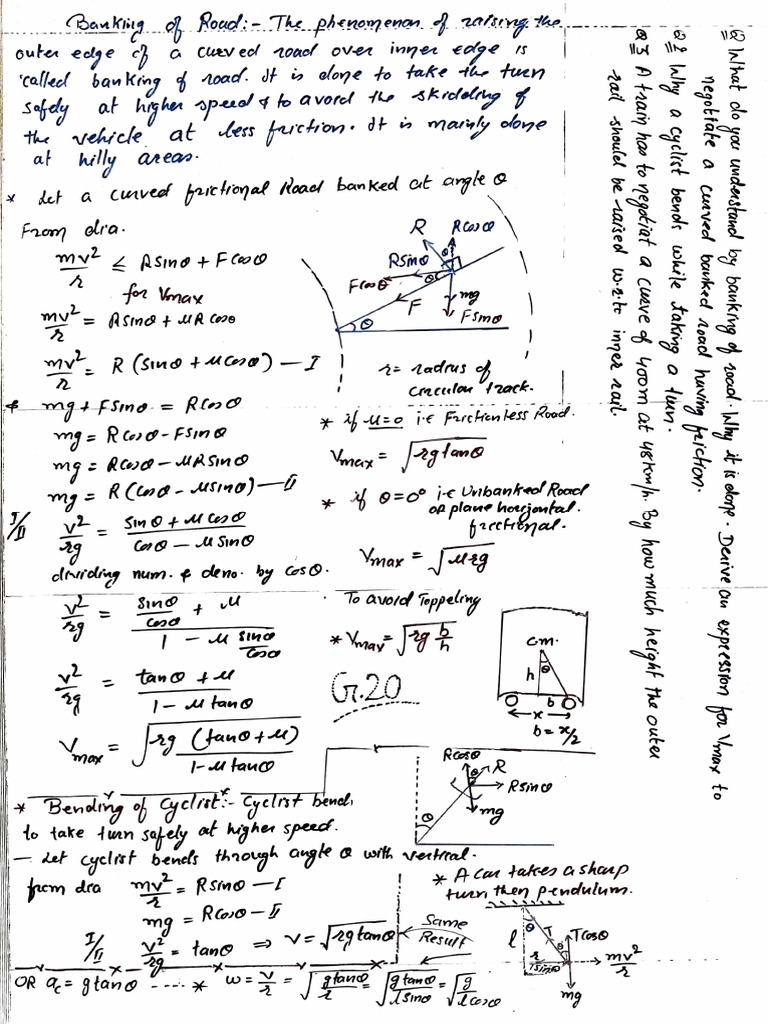 Banking of Road:- The phenomenon of raising the
outer edge of a curved road over inner edge is
called banking of road. It is done to take the turn
safely at higher speed & to avoid the skidding of
the vehicle at less friction. It is mainly done
at hilly areas.
* Let a curved frictional Road banked at angle θ
From dia.
mv²/r ≤ Rsinθ + Fcosθ
for Vmax
mv²/r = Rsinθ + μRcosθ
mv²/r = R(sinθ + μcosθ) — I
& mg + Fsinθ = Rcosθ
mg = Rcosθ - Fsinθ
mg = Rcosθ - μRsinθ
mg = R(cosθ - μsinθ) — II
I/II v²/rg = (sinθ + μcosθ)/(cosθ - μsinθ)
dividing num. & deno. by cosθ.
v²/rg = (sinθ/cosθ + μ)/(1 - μ sinθ/cosθ)
v²/rg = (tanθ + μ)/(1 - μtanθ)
Vmax = √(rg (tanθ + μ)/(1 - μtanθ))
R
Rcosθ
Rsinθ
θ
θ
Fcosθ
F
mg
Fsinθ
θ
r = radius of
circular track.
* if μ=0 i.e Frictionless Road.
Vmax = √(rgtanθ)
* if θ=0° i.e Unbanked Road
or plane horizontal
frictional.
Vmax = √(μrg)
To avoid Toppeling
* Vmax = √(rg b/h)
G.20
C.m.
h
θ
b
x
b = x/2
* Bending of Cyclist:- Cyclist bends
to take turn safely at higher speed.
— Let cyclist bends through angle θ with vertical.
from dia mv²/r = Rsinθ — I
mg = Rcosθ — II
I/II v²/rg = tanθ ⇒ v = √(rgtanθ)
Same
Result
OR ac = gtanθ ----- * ω = v/r = √(gtanθ/r) = √(gtanθ/lsinθ) = √(g/lcosθ)
Rcosθ
R
θ
Rsinθ
mg
θ
* A car takes a sharp
turn then pendulum.
θ
l
T
Tcosθ
θ
r
Tsinθ
mv²/r
mg
Q1 What do you understand by banking of road. Why it is done. Derive an expression for Vmax to
negotiate a curved banked road having friction.
Q2 Why a cyclist bends while taking a turn.
Q3 A train has to negotiat a curve of 400m at 48km/h. By how much height the outer
rail should be raised w.r.to inner rail.